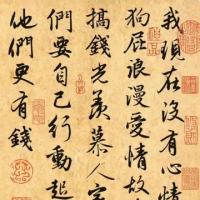 我現在沒有心情
狗屁浪漫愛情故
搞錢光羨慕人家
們要自己行動起
他們更有錢